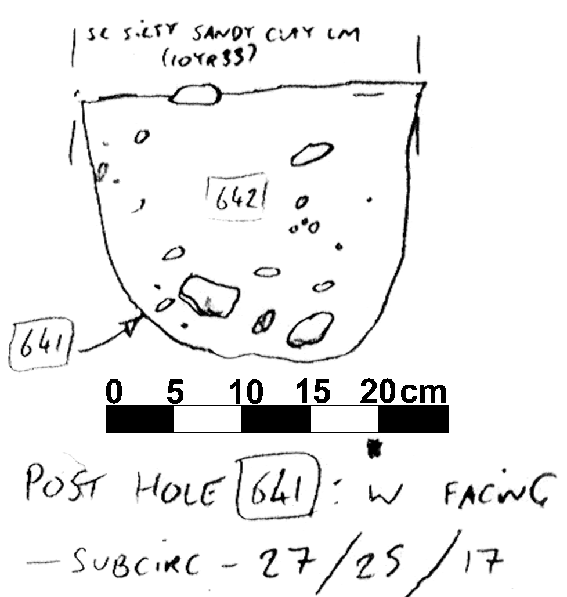 SL SILTY SANDY CLAY LM
(10YR33)
642
641
0 5 10 15 20cm
POST HOLE 641 : W FACING
— SUBCIRC - 27/25/17